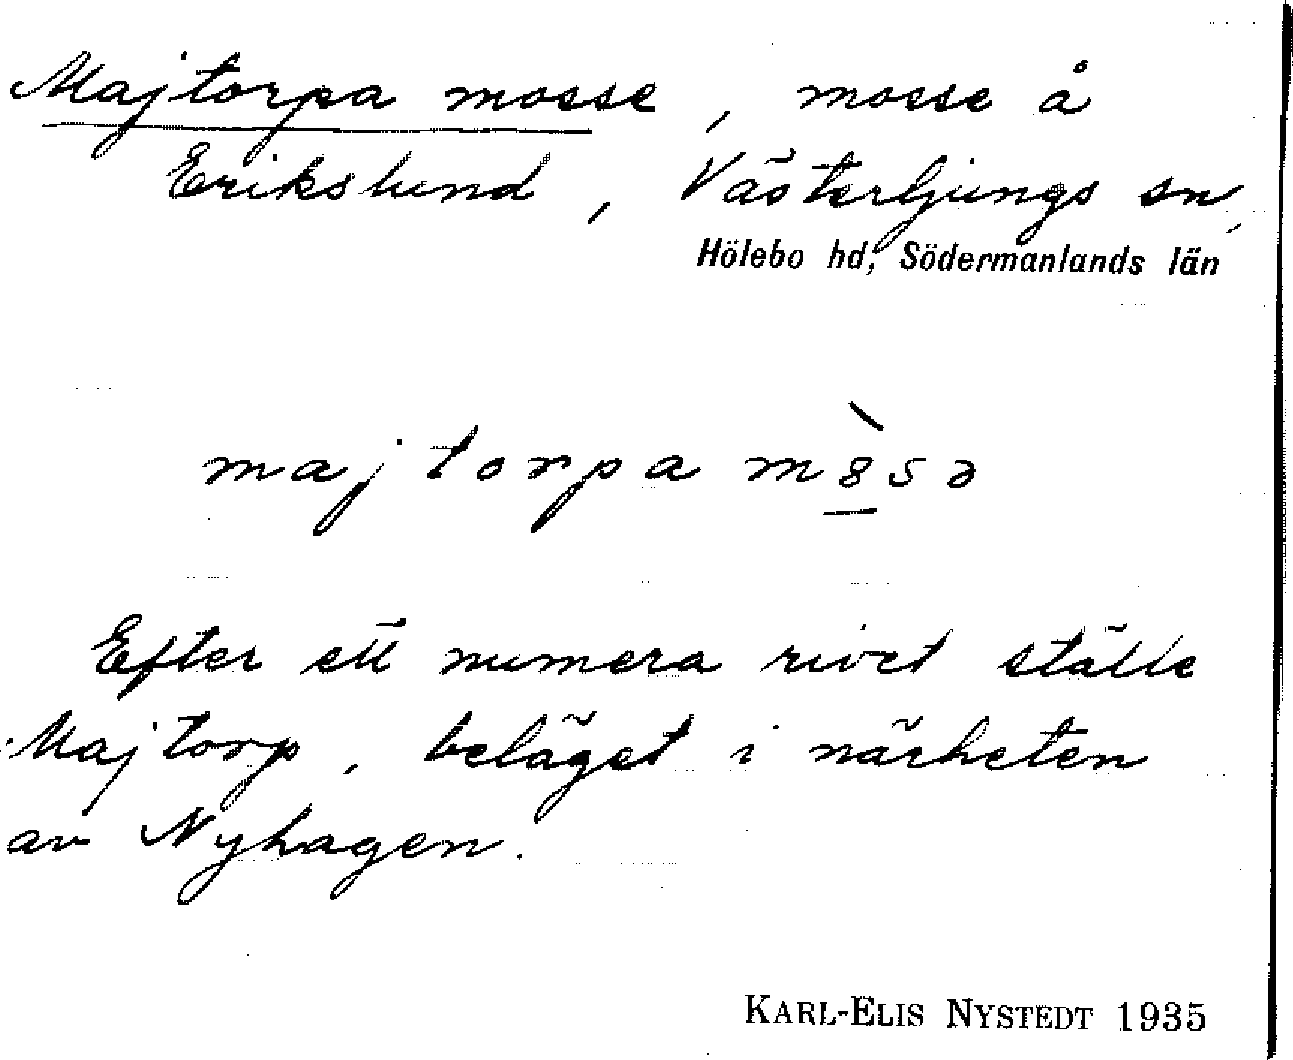 Majtorpa mosse, mosse å
Erikslund, Västerljungs sn,
Hölebo hd, Södermanlands län
majtorpa m8̱̀sə
Efter ett numera rivet ställe
Majtorp, beläget i närheten
av Nyhagen.
KARL-ELIS NYSTEDT 1935